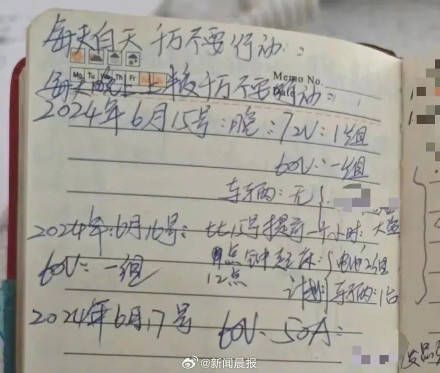 每天白天千万不要行动:
Mo Tu We Th Fr
Memo No.
每天晚上上半夜千万不要行动:
2024年6月15号:晚:72V:1组
60V:一组
车子两:无
2024年:6月16号:比15号提前一个小时,
点钟起床:电池2组
60V:一组
12点
计划:车子两:1台
2024年6月17号 60V 50A:
@新闻晨报